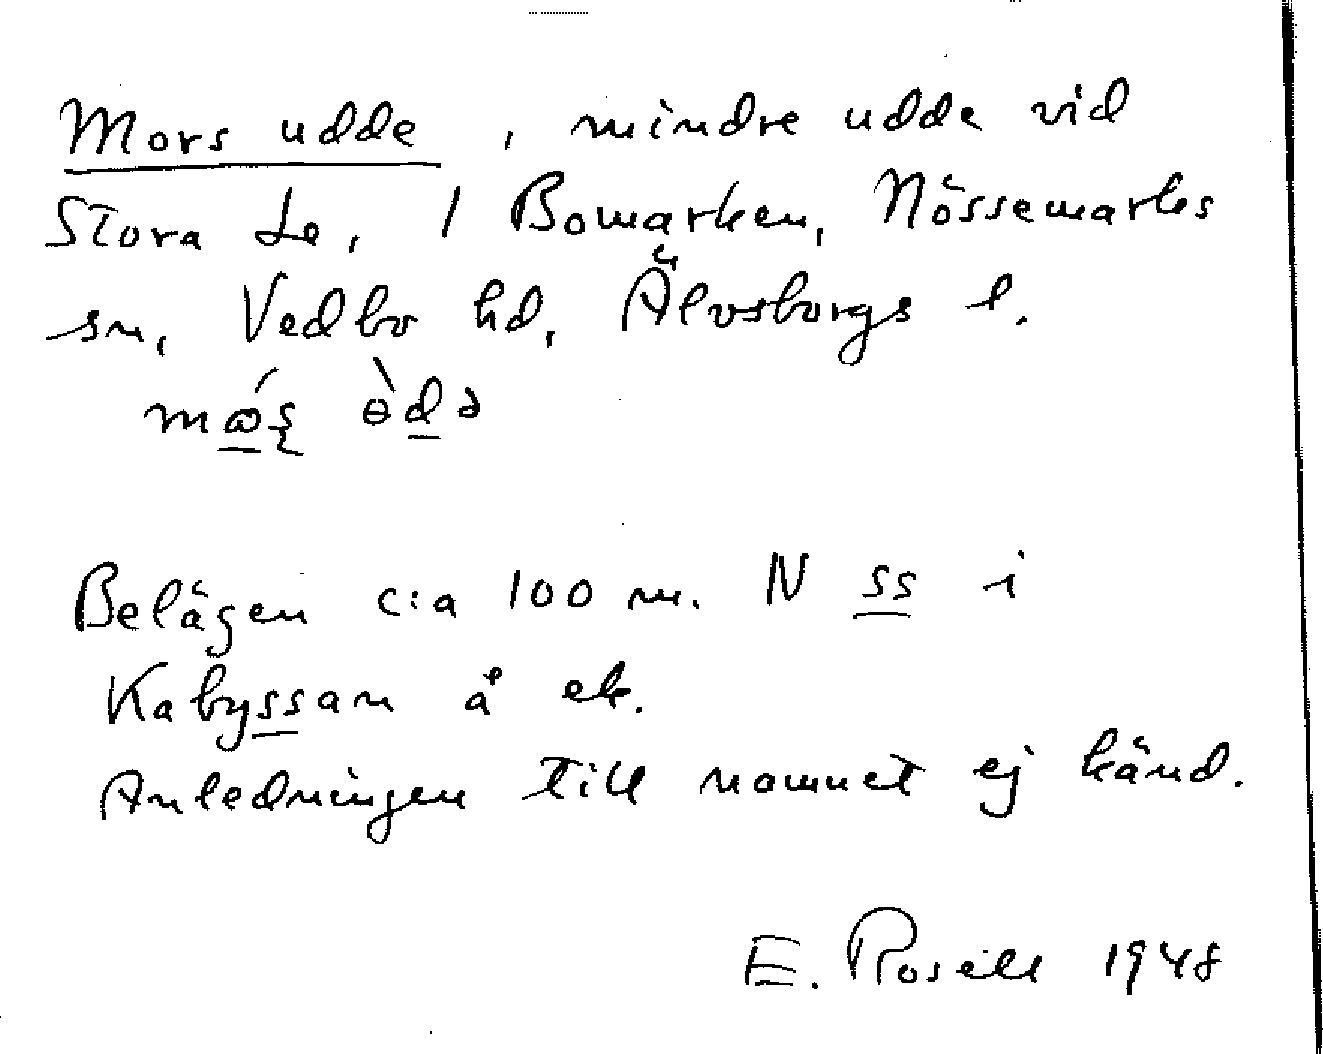 Mors udde, mindre udde vid
Stora Le, 1 Bomarken, Nössemarks
sn, Vedbo hd, Älvsborgs l.
Belägen c:a 100 m. N ss i
Kabyssan å ek.
Anledningen till namnet ej känd.
E. Rosell 1948